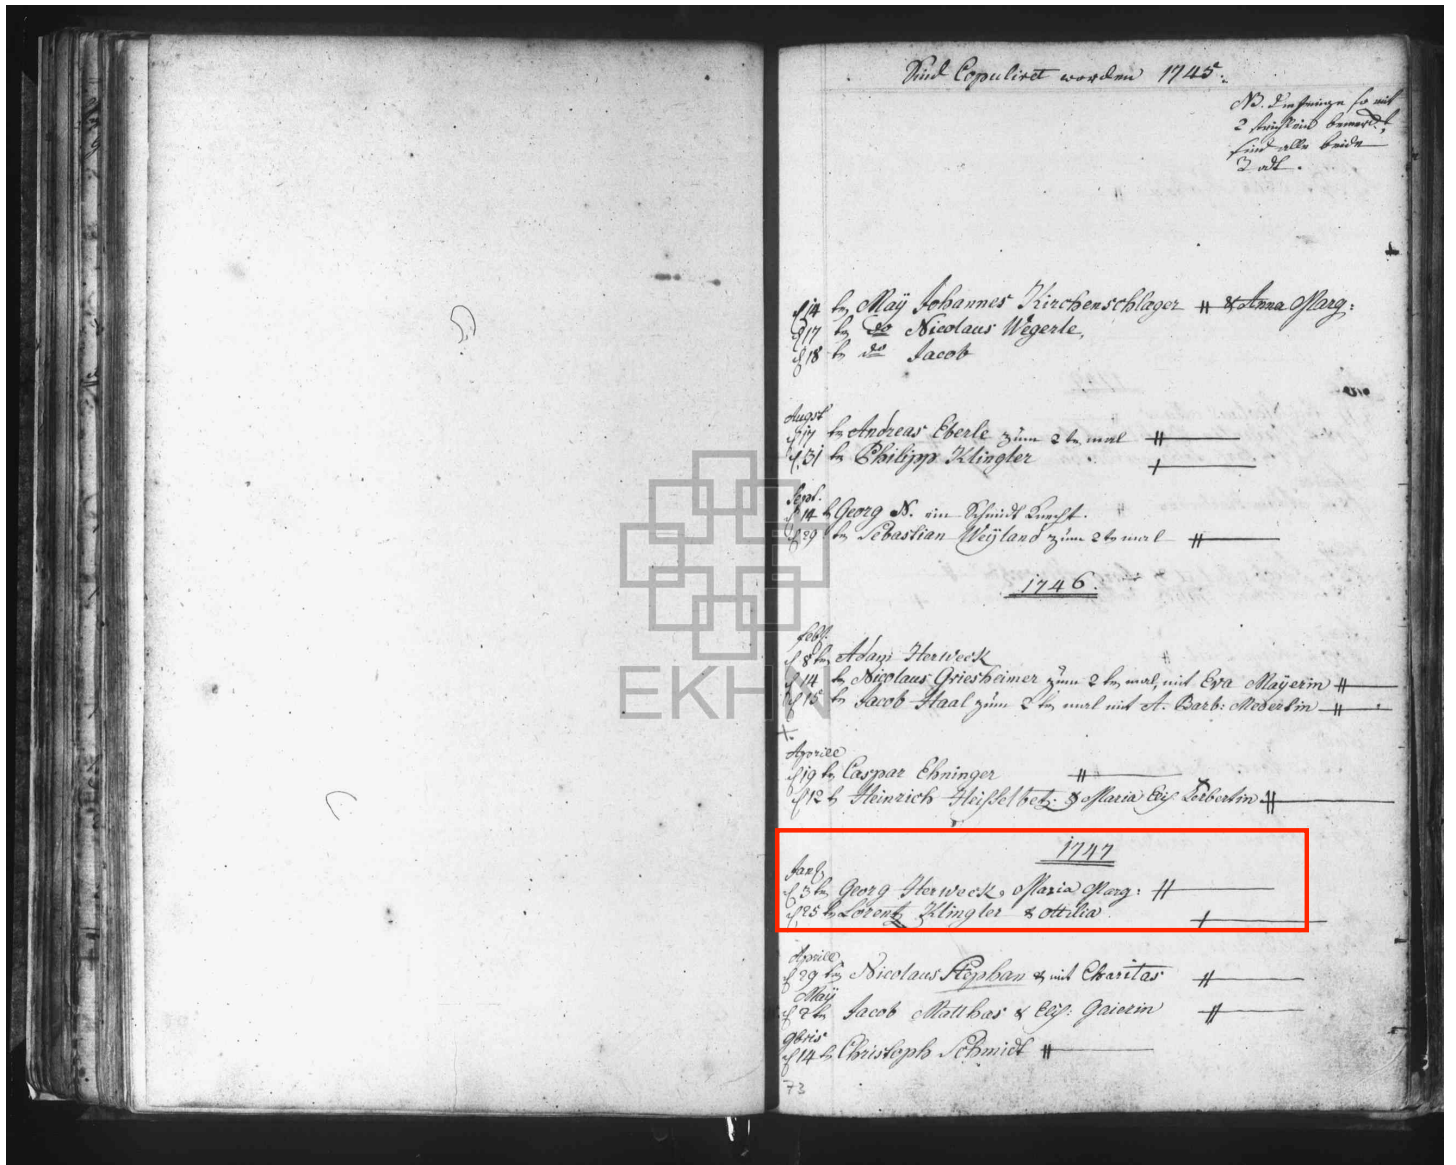 Sind Copuliret worden 1745.
NB. diejenige so mit
2 strichlein bemerckt,
sind alle beide
Todt.
d. 14 t. Maÿ Johannes Kirchenschlager & Anna Marg:
d. 17 t. do Nicolaus Wegerle,
d. 18 t. do Jacob
Augst
d. 17 t. Andreas Eberle zum 2 t. mal
d. 31 t. Philipp Klingler
Sept.
d. 14 t. Georg N. ein Schmidt Knecht.
d. 29 t. Sebastian Weÿland zum 2 t. mal
1746.
Febr.
d. 8 t. Adam Herweck
d. 14 t. Nicolaus Griesheimer zum 2 t. mal, mit Eva Maÿerin
d. 15 t. Jacob Haal zum 2 t. mal mit A. Barb:
Aprill
d. 19 t. Caspar Ehninger
d. 12 t. Heinrich Heisselbetz & Maria Elis.
1747
Jan.
d. 3 t. Georg Herweck, Maria Marg:
d. 25 t. Lorentz Klingler & Ottilia
Aprill
d. 29 t. Nicolaus Stephan & mit Charitas
Maÿ
d. 2 t. Jacob Matthas & Elis: Gaierin
9bris
d. 14 t. Christoph Schmidt
73
EKHN